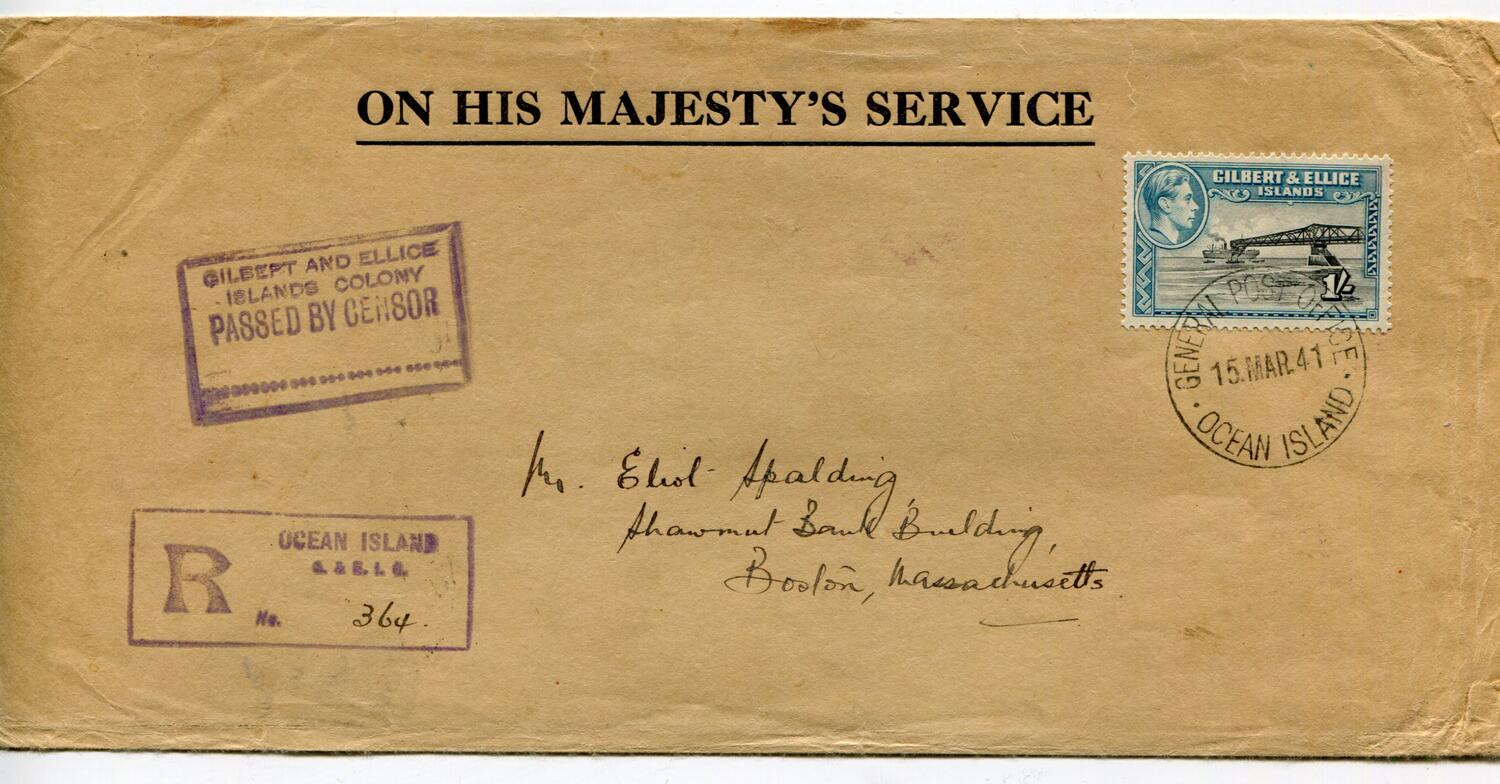 ON HIS MAJESTY'S SERVICE
GILBERT & ELLICE
ISLANDS
1/-
GENERAL POST OFFICE
15.MAR.41
OCEAN ISLAND
GILBERT AND ELLICE
ISLANDS COLONY
PASSED BY CENSOR
Mr. Eliot Spalding,
Shawmut Bank Building,
Boston, Massachusetts
R
OCEAN ISLAND
G. & E. I. C.
No. 364.